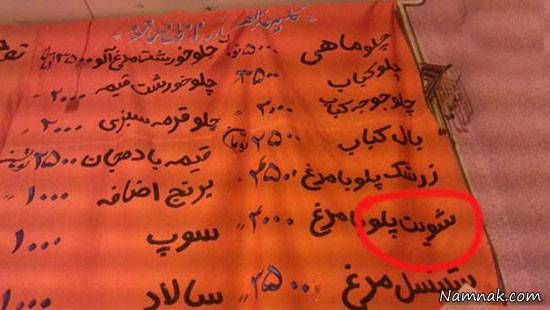 چلوماهی
چلوکباب ۳۵۰۰
چلوجوجه کباب ۲۰۰۰
بال کباب ۲۵۰۰
زرشک پلو با مرغ ۲۵۰۰
شویت پلو با مرغ ۲۰۰۰
شنسل مرغ ۲۵۰۰
چلوخورشت مرغ آلو ۲۵۰۰
چلو خورشت قیمه ۲۰۰۰
چلو قرمه سبزی ۲۰۰۰
قیمه بادمجان ۲۵۰۰
برنج اضافه ۱۰۰۰
سوپ ۱۰۰۰
سالاد ۱۰۰۰
Namnak.com